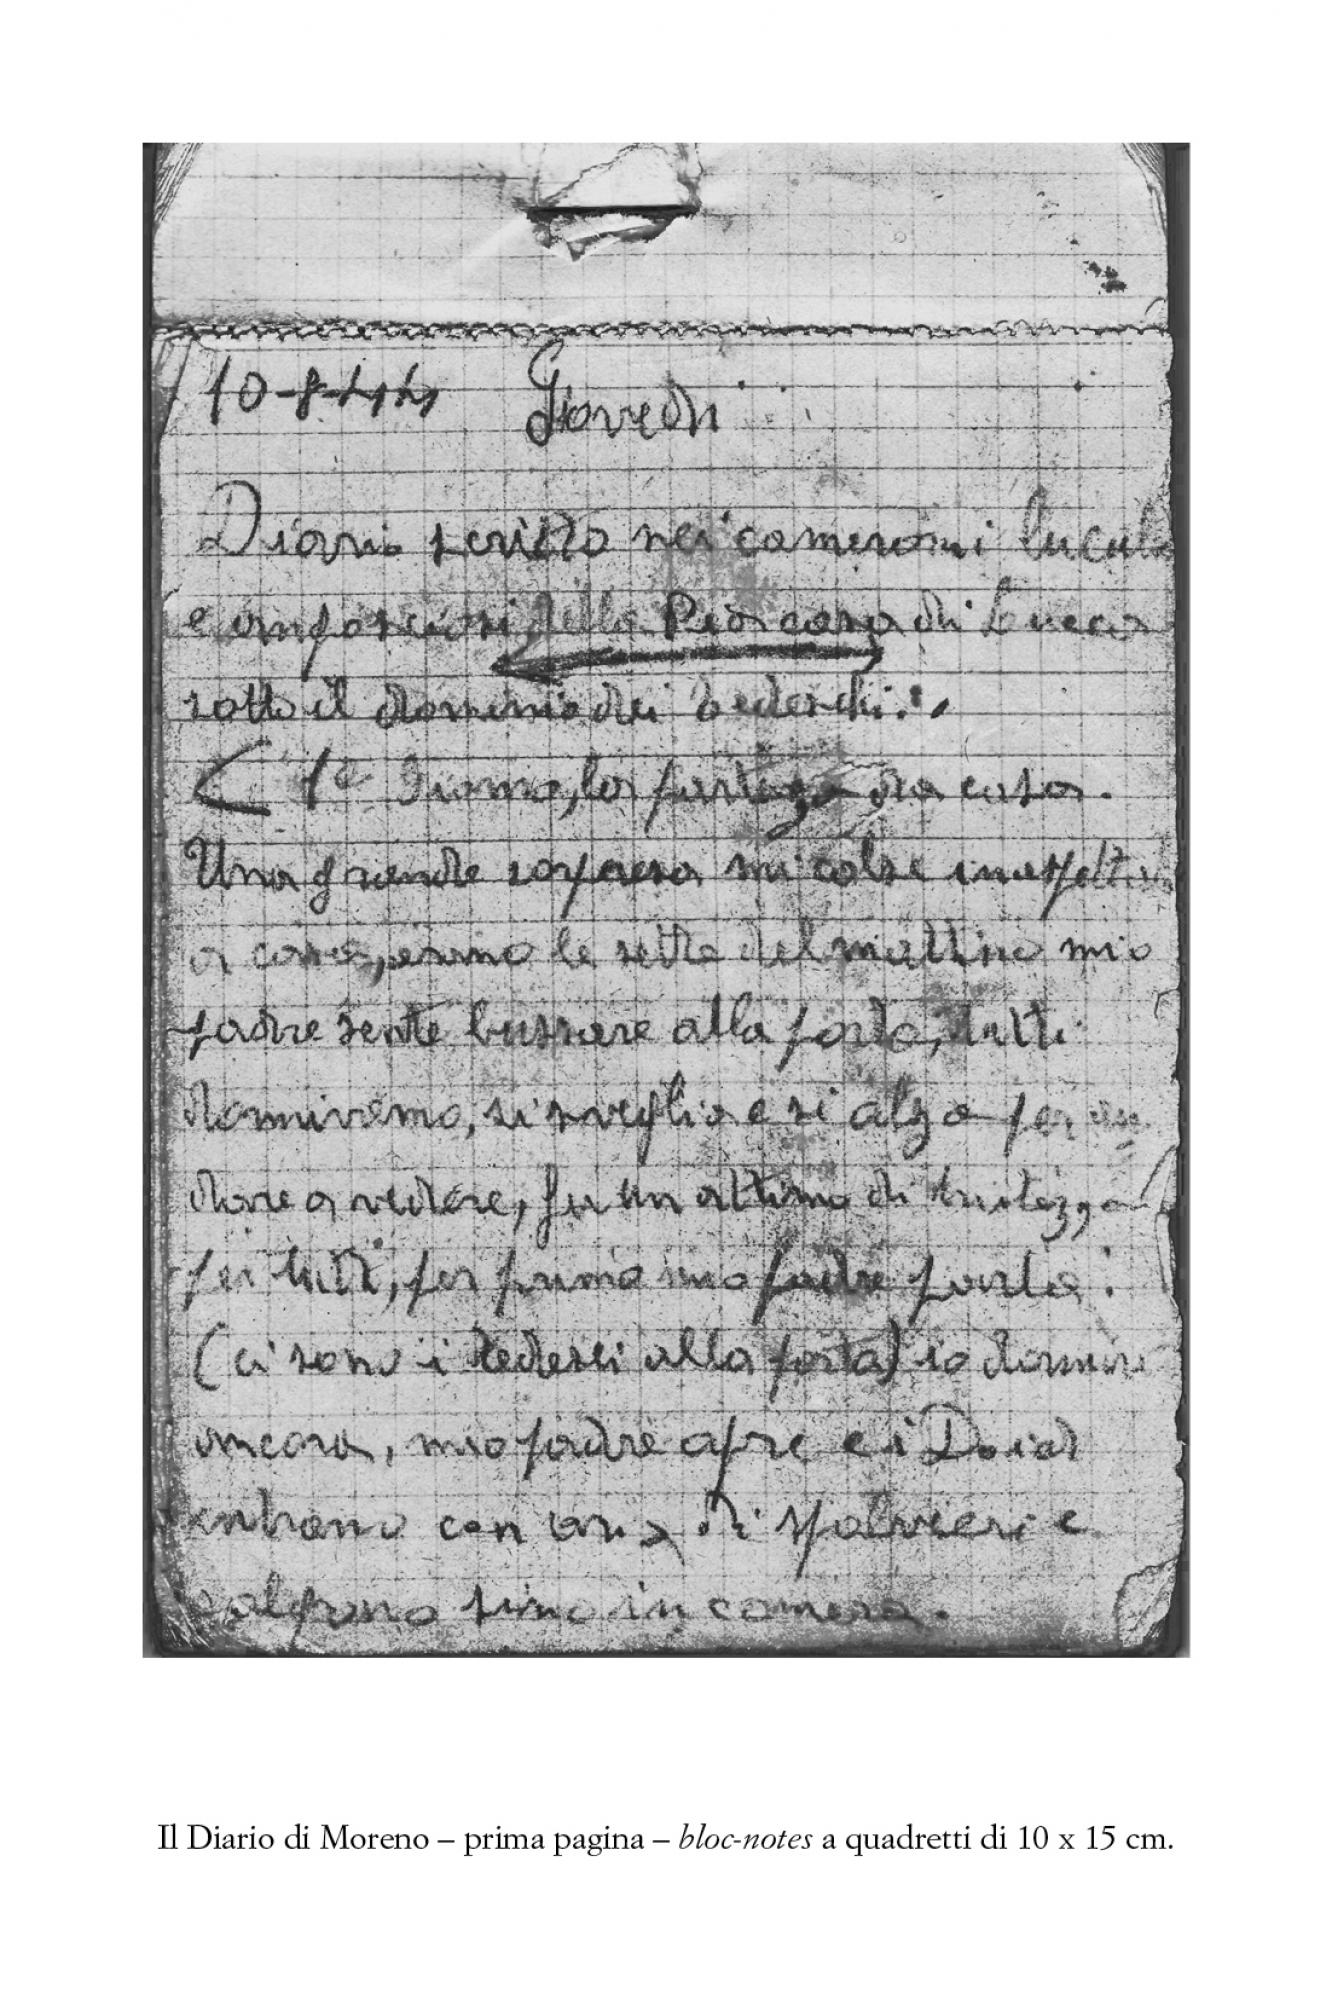 10-8-44 Giovedì
Diario scritto nei cameroni
e angosciosi della Pia casa di Lucca
sotto il dominio dei Tedeschi.
1° Giorno, la partenza da casa.
Una grande sorpresa mi colse inaspettata
a casa, erano le sette del mattino mio
padre sente bussare alla porta, tutti
dormivamo, si sveglia e si alza per an
dare a vedere, fu un attimo di tristezza
per tutti, per primo mio padre parla:
(ci sono i tedeschi alla porta) io dormivo
ancora, mio padre apre e i
entrano con aria di spalvieri e
salgono sino in camera.
Il Diario di Moreno – prima pagina – bloc-notes a quadretti di 10 x 15 cm.